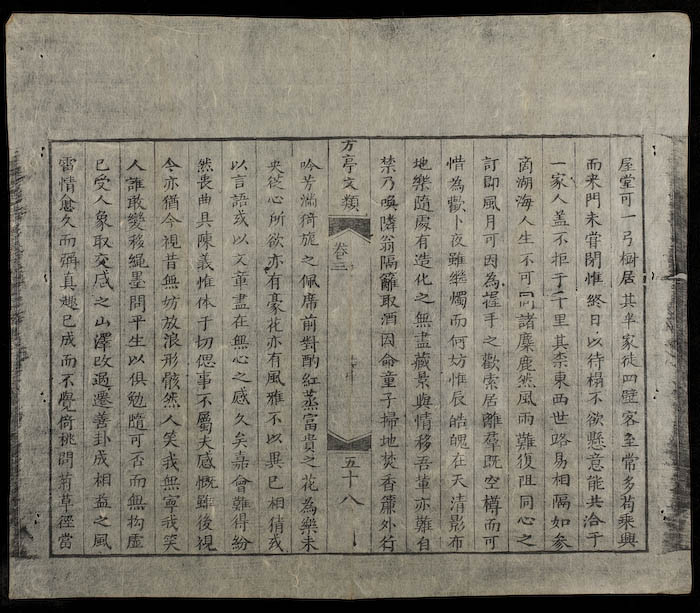 屋堂可一弓櫥居其半家徒四壁客至常多苟乘興
而来門未甞閉惟終日以待榻不欲懸意能共洽于
一家人盖不拒于千里其柰東西世路易相隔如参
啇湖海人生不可同諸麋鹿然風雨難復阻同心之
訂即風月可因為握手之歡索居離羣既空樽而可
惜為歡卜夜雖繼燭而何妨惟辰皓魄在天清影布
地樂隨處有造化之無盡藏景與情移吾輩亦難自
禁乃喚隣翁隔籬取酒因命童子掃地焚香簾外行
方亭文類
卷三
五十八
吟芳滿猗旎之佩席前對酌紅蒸富貴之花為樂未
央從心所欲亦有豪花亦有風雅不以異已相猜或
以言語或以文章盡在無心之感久矣嘉會難得紛
然喪曲具陳義惟休于切偲事不屬夫感慨雖後視
今亦猶今視昔無妨放浪形骸然人笑我無寧我笑
人誰敢變移繩墨問平生以俱勉隨可否而無拘虛
已受人象取交感之山澤改過遷善卦成相益之風
雷情愈久而弥真趣已成而不覺倚桃問葯草徑當